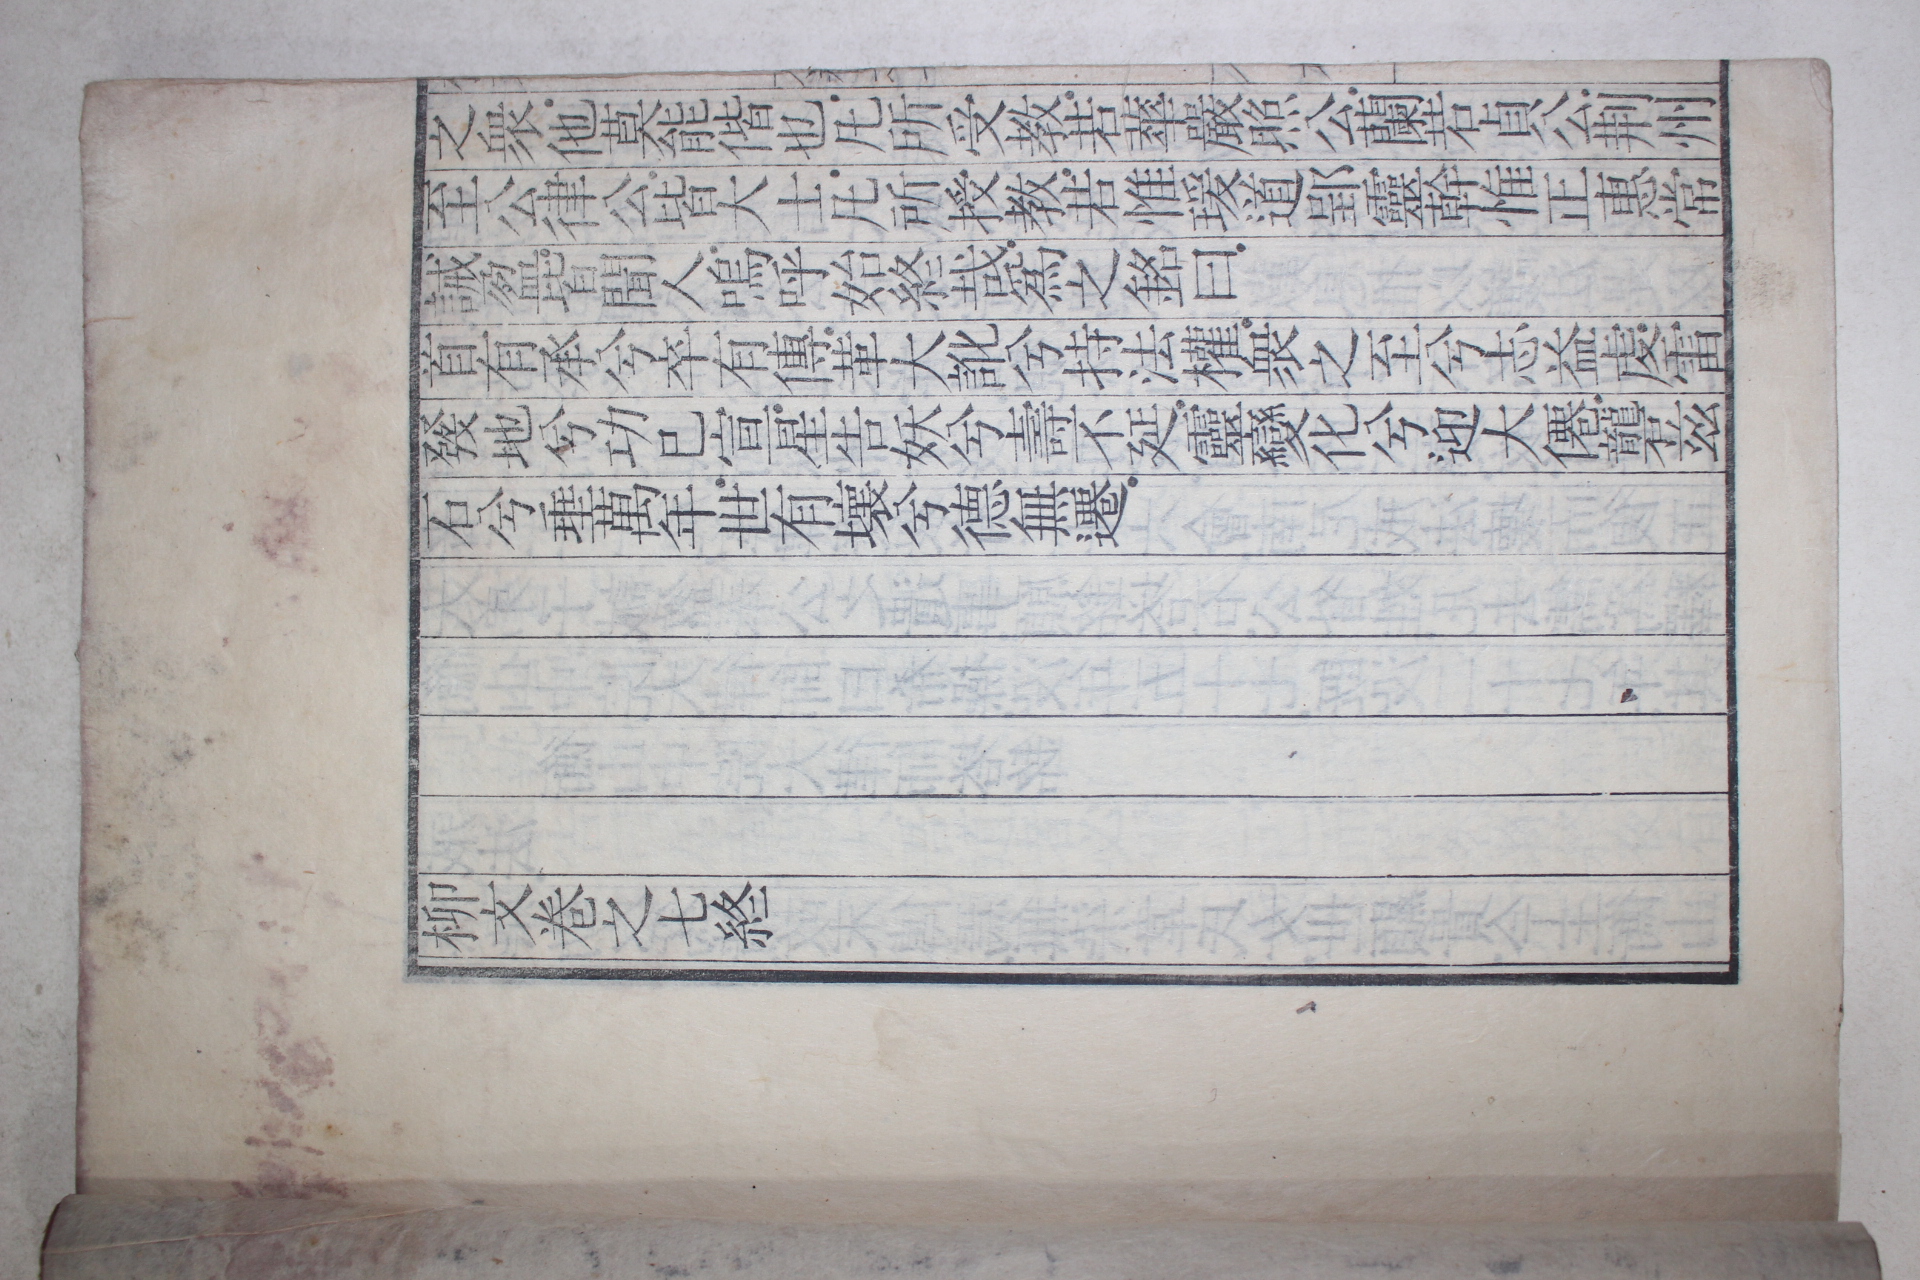 之衆他莫能偕也凡所受教若華嚴照公蘭若貞公荆州
至公律公皆大士凡所授教若惟瑗道郢靈幹惟正惠常
誠盈皆聞人嗚呼始終哉爲之銘曰
首有承兮卒有傳革大訛兮持法權衆之至兮志益虔雷
發地兮功已宣星告妖兮壽不延靈變化兮迎大僊礱兹
石兮垂萬年世有壞兮德無遷
柳文卷之七終